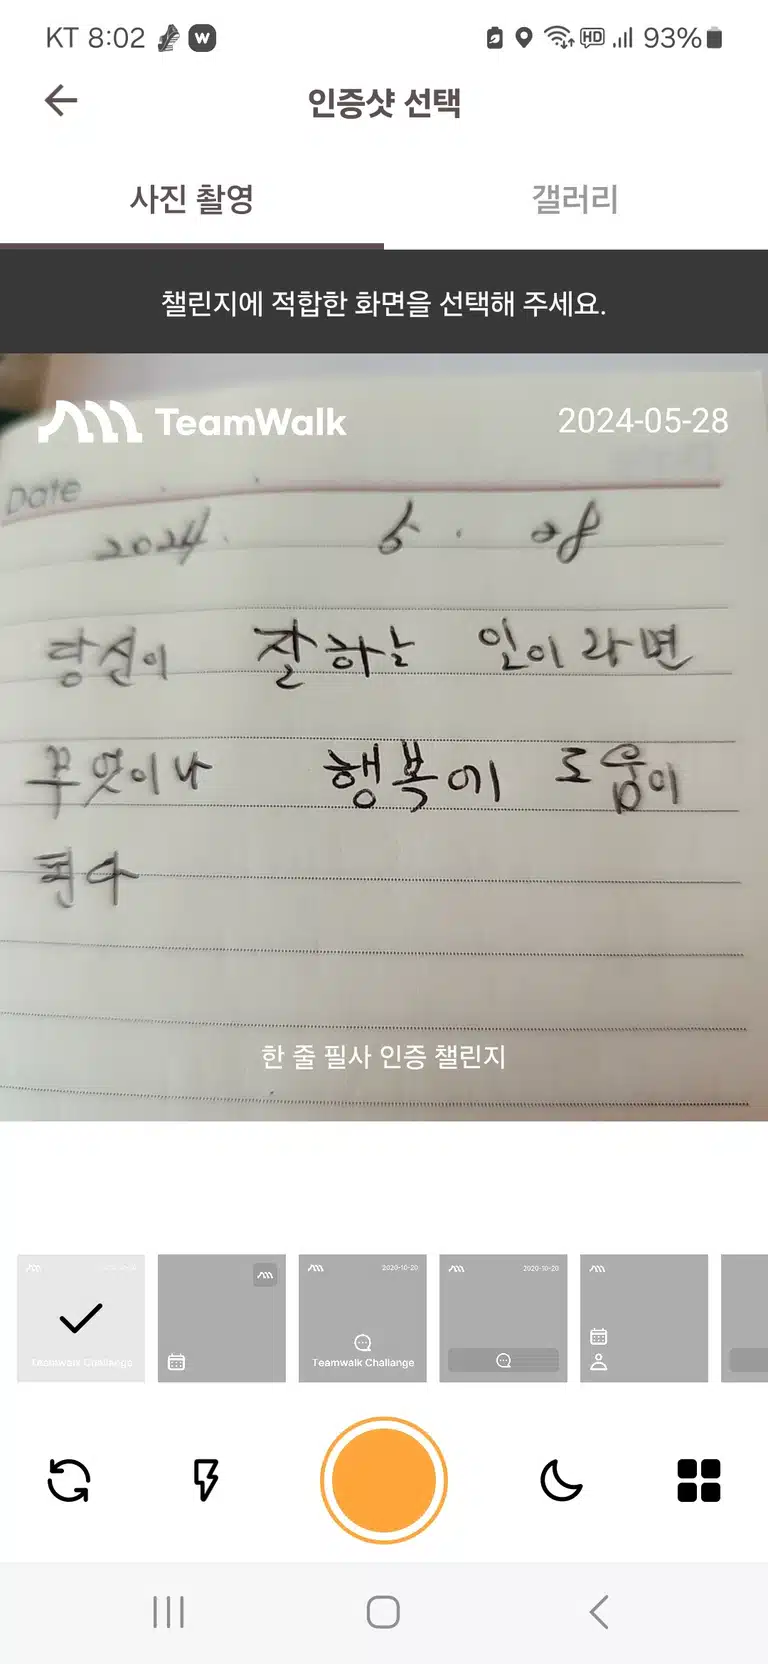 KT 8:02 W HD 93%
인증샷 선택
사진 촬영 갤러리
챌린지에 적합한 화면을 선택해 주세요.
TeamWalk 2024-05-28
Date
2024. 5. 28
당신이 잘하는 일이라면
무엇이나 행복에 도움이
된다
한 줄 필사 인증 챌린지
2020-10-20 2020-10-20
Teamwalk Challange Teamwalk Challange